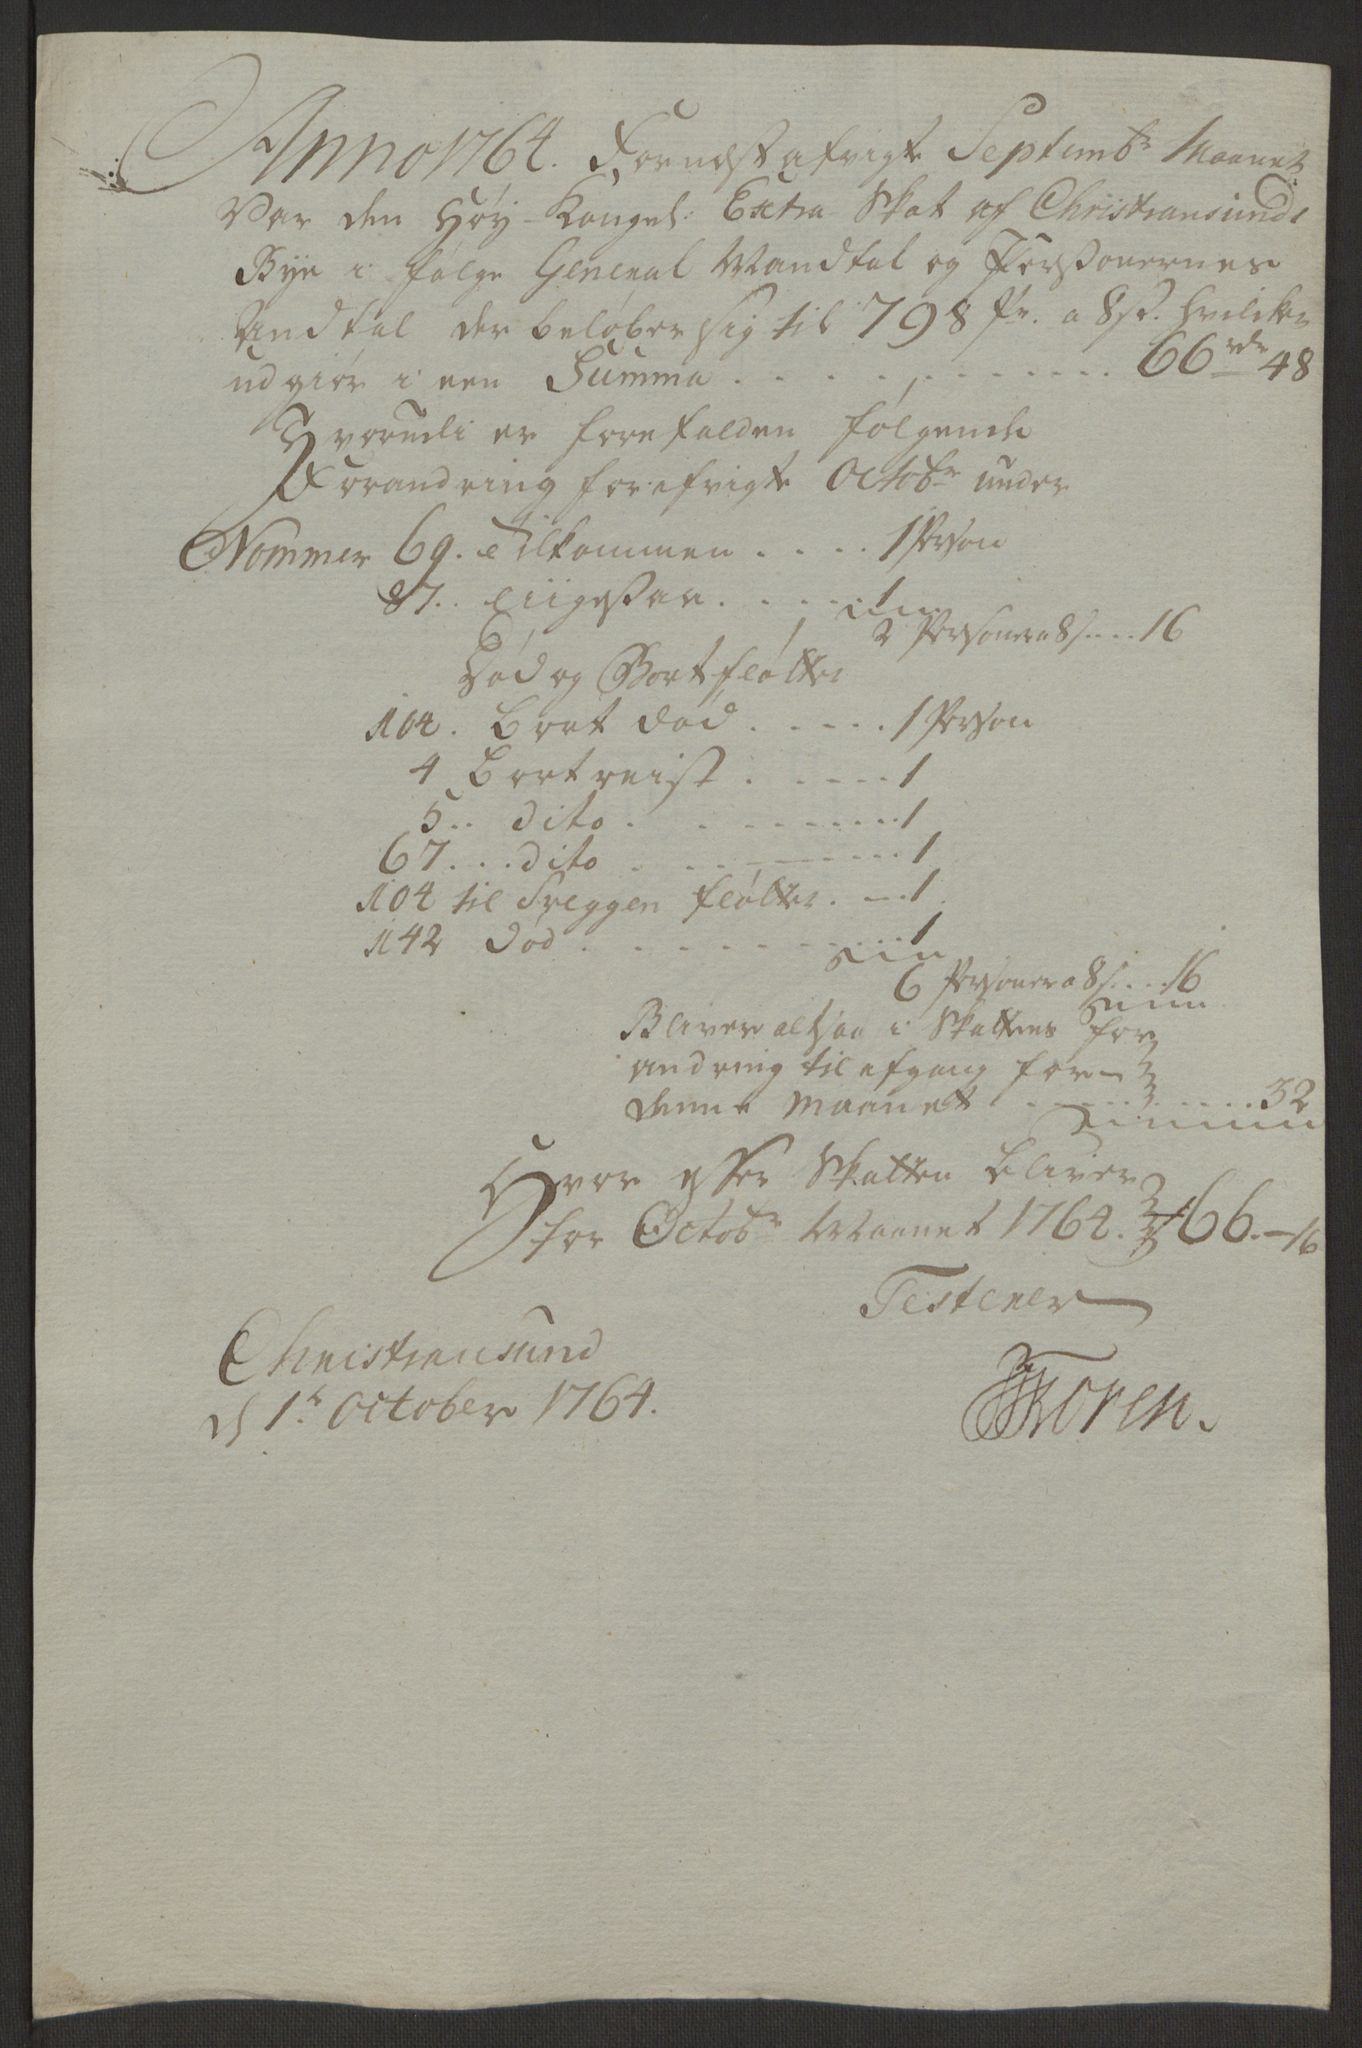 Anno 1764. For nest afvigte Septembr Maanet
Var den Høy-Kongel: Extra Skat af Christiansunds
Bye i følge General Mandtal og Personernes
Andtal der beløber sig til 798 Pr. a 8 s. hvilke
udgiør i een Summa . . . . . . . . . . 66 rdr 48
Hvorudi er forefalden følgende
Forandring for afvigte Octobr under
Nommer 69. Tilkommen . . . . 1 Person
87. Ligesaa . . . . . 1
2 Personer a 8 s . . . 16
Død og Bortfløtter
104. Bort død . . . . . 1 Person
4 Bortreist . . . . . 1
5 . . dito . . . . . . . . . 1
67 . . . dito . . . . . . . . 1
104 til Freggen fløtter . . . 1
142 Død . . . . . . . . . . 1
6 Personer a 8 s . . . 16
Bliver altsaa i Skattens for
andring til afgang for
denne Maanet . . . . . . . . . . 32
Hvor efter Skatten bliver
for Octobr Maanet 1764. 66.-16
Testerer
Christiansund
d 1t October 1764.
Koren.